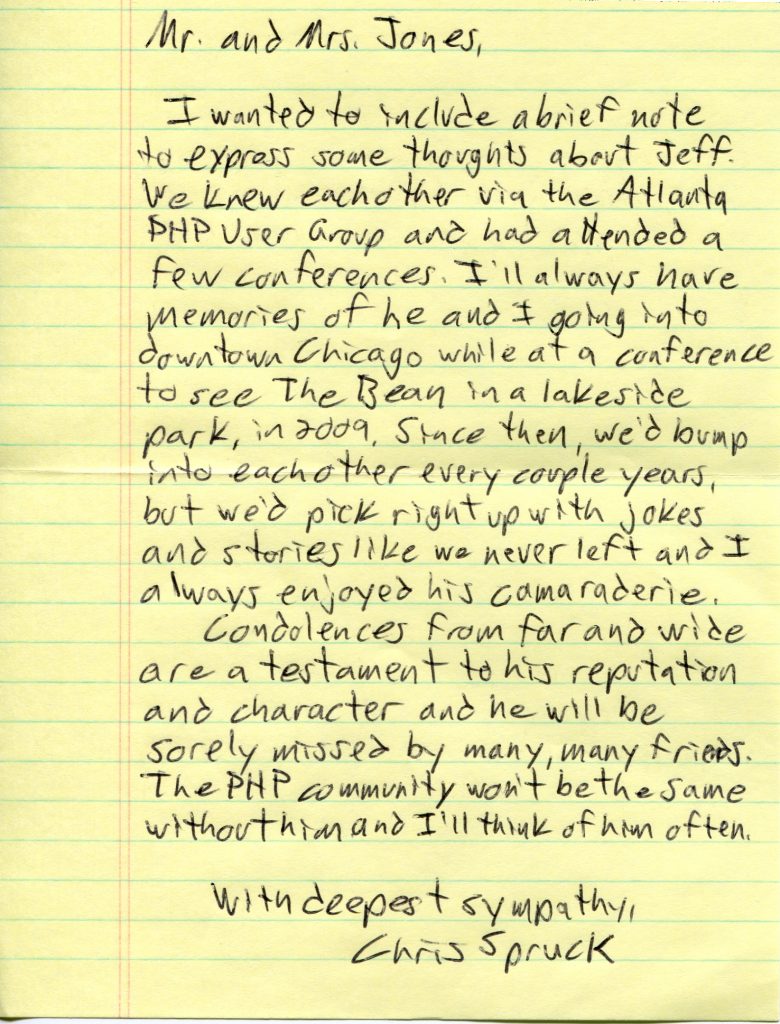 Mr. and Mrs. Jones,
I wanted to include a brief note
to express some thoughts about Jeff.
We knew eachother via the Atlanta
PHP User Group and had attended a
few conferences. I'll always have
memories of he and I going into
downtown Chicago while at a conference
to see The Bean in a lakeside
park, in 2009. Since then, we'd bump
into eachother every couple years,
but we'd pick right up with jokes
and stories like we never left and I
always enjoyed his camaraderie.
Condolences from far and wide
are a testament to his reputation
and character and he will be
sorely missed by many, many frieds.
The PHP community won't be the same
without him and I'll think of him often.
With deepest sympathy,
Chris Spruck